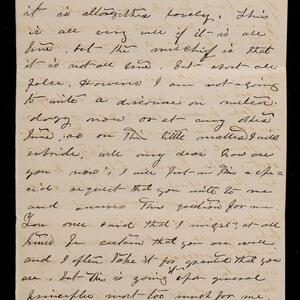 it is altogether lovely. This
is all very well if it is all
true, but the mischief is that
it is not all true. but about all
false. However I am not going
to write a discourse on meteor-
ology now or at any other
time, so on this little matter I will
subside. Well my dear how are
you now. I will put in this a spe-
cial request that you write to me
and answer this question for me.
You once said that I might, at all
times be certain that you are well,
and I often take it for granted that you
are, but this is going it on general
principles most too much for me